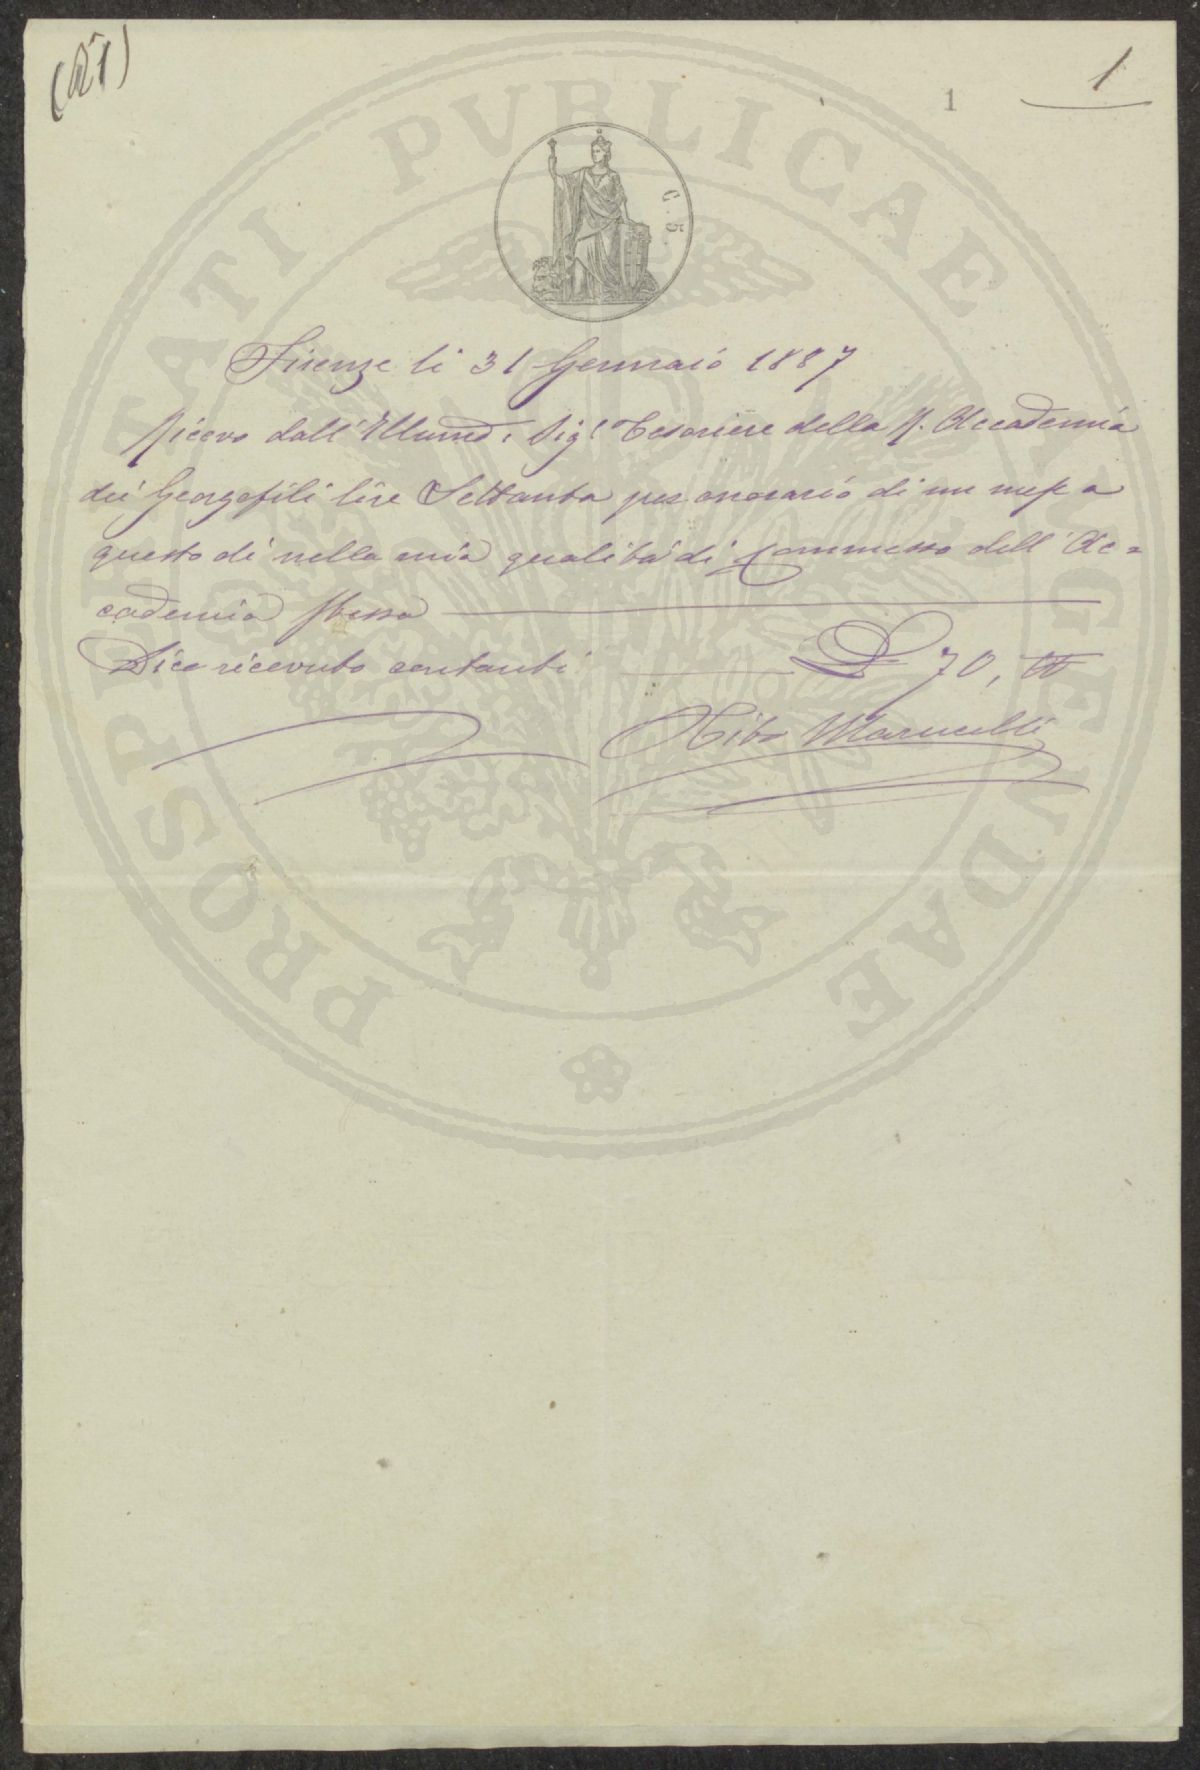 1
1
C. 5.
PROSPERITATI PVBLICAE AVGENDAE
Firenze li 31 Gennaio 1887
Ricevo dall' Sigr Tesoriere della R. Accademia
dei Georgofili lire Settanta per onorario di un mese a
questo dì nella mia qualità di Commesso dell' Ac=
cademia stessa
Dico ricevuto contanti L 70,
Marucelli